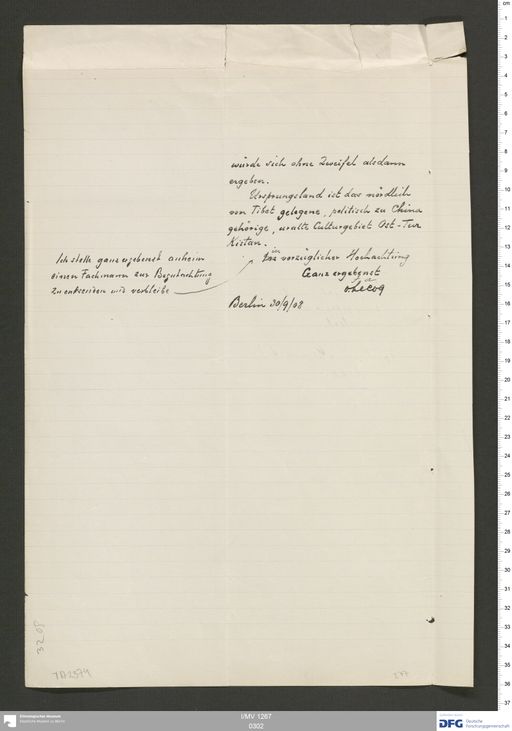 würde sich ohne Zweifel alsdann
ergeben.
Ursprungsland ist das nördlich
von Tibet gelegene, politisch zu China
gehörige, uralte Culturgebiet Ost-Tur
kistan.
Ich stelle ganz ergebenst anheim
einen Fachmann zur Begutachtung
zu entsenden und verbleibe
in vorzüglicher Hochachtung
Ganz ergebenst
v. Le Coq
Berlin 30/9/08
3208
277
Ethnologisches Museum
Staatliche Museen zu Berlin
I/MV 1267
0302
DFG Deutsche
Forschungsgemeinschaft